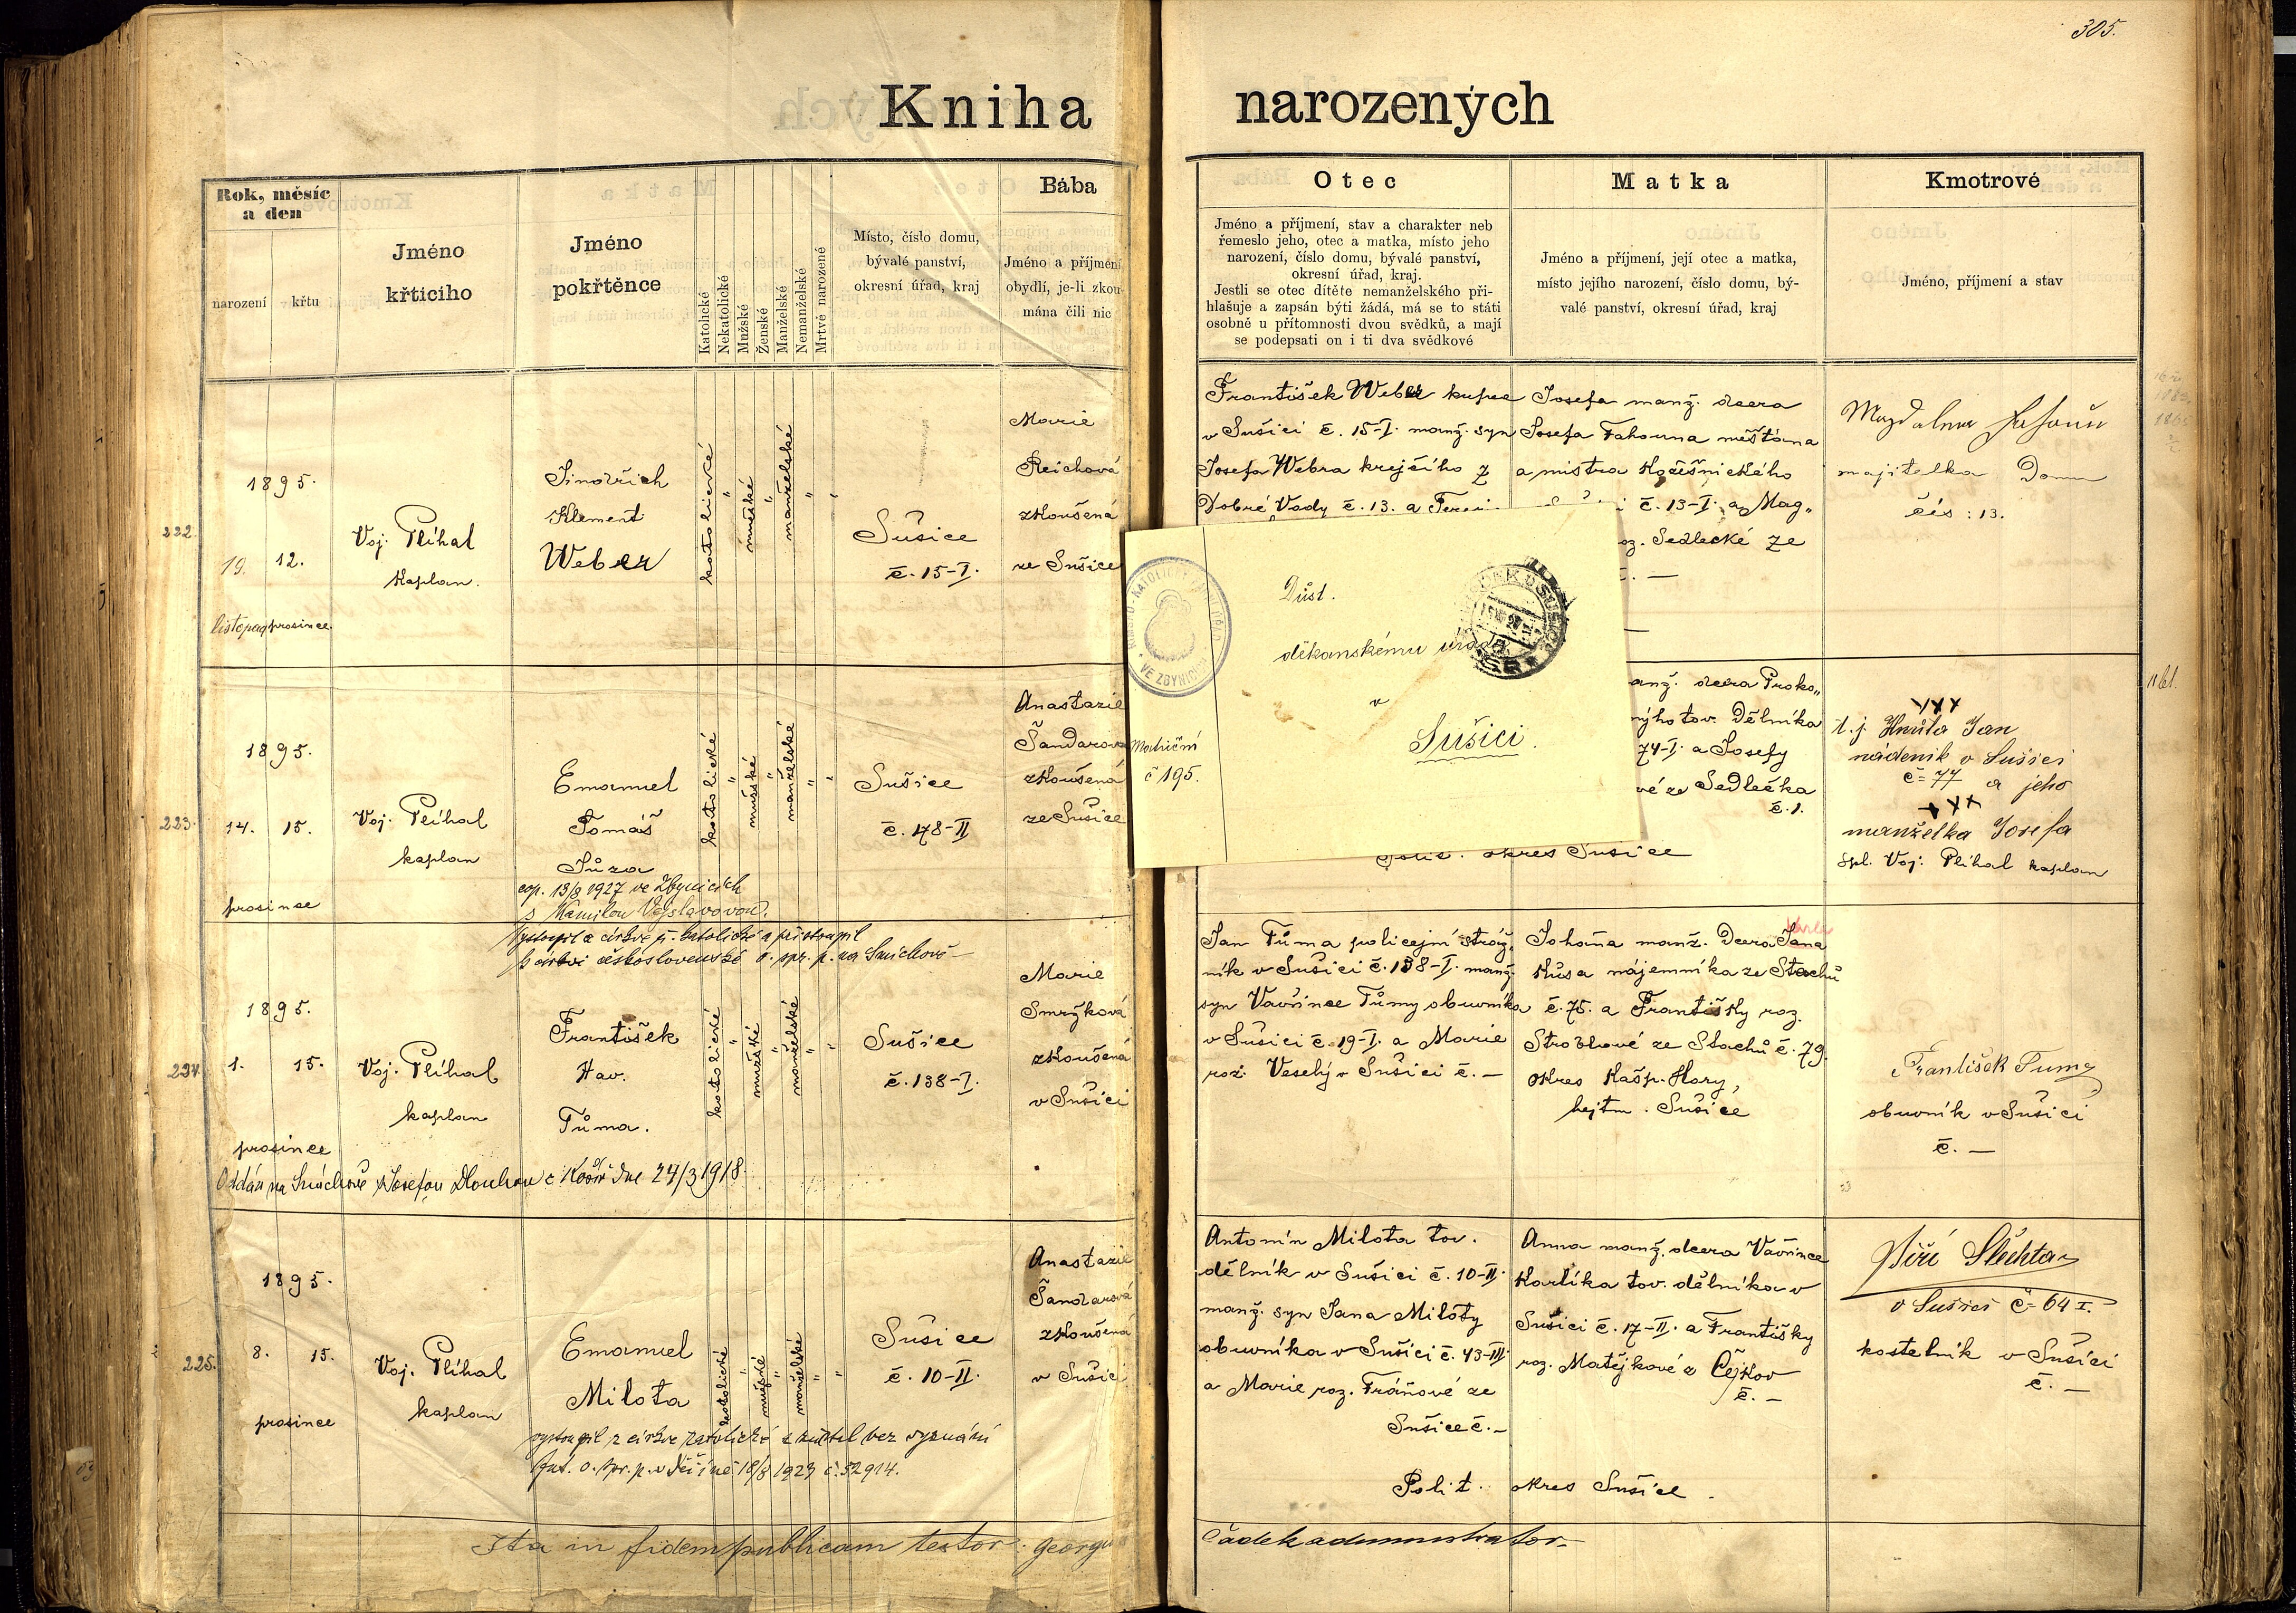 305.
Kniha narozených
Rok, měsíc
a den
narození
křtu
Jméno
křticího
Jméno
pokřtěnce
Katolické
Nekatolické
Mužské
Ženské
Manželské
Nemanželské
Mrtvě narozené
Místo, číslo domu,
bývalé panství,
okresní úřad, kraj
Bába
Jméno a příjmení
obydlí, je-li zkou-
mána čili nic
Otec
Jméno a příjmení, stav a charakter neb
řemeslo jeho, otec a matka, místo jeho
narození, číslo domu, bývalé panství,
okresní úřad, kraj.
Jestli se otec dítěte nemanželského při-
hlašuje a zapsán býti žádá, má se to státi
osobně u přítomnosti dvou svědků, a mají
se podepsati on i ti dva svědkové
Matka
Jméno a příjmení, její otec a matka,
místo jejího narození, číslo domu, bý-
valé panství, okresní úřad, kraj
Kmotrové
Jméno, příjmení a stav
222.
1895.
19. 12.
listopad prosince.
Voj. Plíhal
kaplan.
Jindřich
Klement
Weber
katolické
"
mužské
"
manželské
"
"
Sušice
č. 15-I.
Marie
Reichová
zkoušená
ze Sušice
František Weber kupec
v Sušici č. 15-I. manž. syn
Josefa Webra krejčího z
Dobré Vody č. 13. a Terezi-
Josefa manž. dcera
Josefa Fahouna měšťana
a mistra
č. 13-I. a Mag-
roz. Sedlecké ze
č. —
Magdalena
majitelka Domu
čís: 13.
Důst.
děkanskému úřadu
v
Sušici.
VE ZBYNICÍCH
Matriční
č 195.
223.
1895.
14. 15.
prosince
Voj. Plíhal
kaplan
Emanuel
Tomáš
Jůza
cop. 13/8 1927 ve Zbynicích
s Kamilou Vejslavovou.
katolické
"
mužské
"
manželské
"
"
Sušice
č. 178-II
Anastazie
Šandarova
zkoušená
ze Sušice
manž. dcera Proko-
tov. Dělníka
74-I. a Josefy
vé ze Sedlečka
č. 1.
Polit. okres Sušice
XXX
t. j. Hnůta Jan
nádeník v Sušici
č= 77 a jeho
XXX
manželka Josefa
spl. Voj: Plíhal kaplan
Vystoupil z církve ř. katolické a přistoupil
k církvi československé o. spr. p. na Smíchově —
224.
1895.
1. 15.
prosince
Voj. Plíhal
kaplan
František
Hav.
Tůma.
katolické
"
mužské
"
manželské
"
"
Sušice
č. 138-I.
Marie
Smržková
zkoušená
v Sušici
Jan Tůma policejní stráž-
ník v Sušici č. 138-I. manž.
syn Vavřince Tůmy obuvníka
v Sušici č. 19-I. a Marie
roz. Veselý v Sušici č. —
Johana manž. Dcera Jana
Kůsa nájemníka ze Stachů
č. 75. a Františky roz.
Stroblové ze Stachů č. 79.
okres Kašp. Hory,
hejtm. Sušice
František Tuma
obuvník v Sušici
č. —
Oddán na Smíchově s Josefou Dlouhou z Košíř dne 24/3 1918.
225.
1895.
8. 15.
prosince
Voj. Plíhal
kaplan
Emanuel
Milota
katolické
"
mužské
"
manželské
"
"
Sušice
č. 10-II.
Anastazie
Šandarová
zkoušená
v Sušici
Antonín Milota tov.
dělník v Sušici č. 10-II.
manž. syn Jana Miloty
obuvníka v Sušici č. 43-III.
a Marie roz. Fráňové ze
Sušice č. —
Anna manž. dcera Vavřince
Karlíka tov. dělníka v
Sušici č. 17-II. a Františky
roz. Matějkové z Čejkov
č. —
Polit. okres Sušice.
Jiří Šlechta
v Sušici č= 64 I.
kostelník v Sušici
č. —
vystoupil z církve katolické a zůstal bez vyznání
o. spr. p. v Děčíně 18/8 1923 č. 52914.
Ita in fidem publicam testor. Georgius
Čadek administrator.